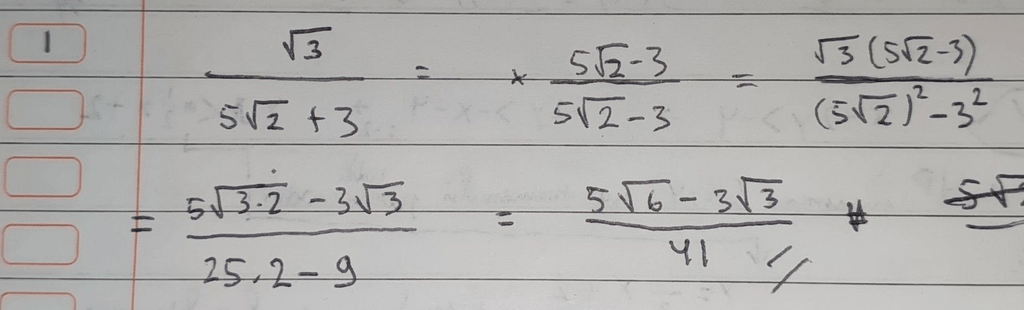 1
√3 / (5√2 + 3) = × (5√2 - 3) / (5√2 - 3) = √3 (5√2 - 3) / ((5√2)² - 3²)
= (5√(3.2) - 3√3) / (25.2 - 9) = (5√6 - 3√3) / 41 //